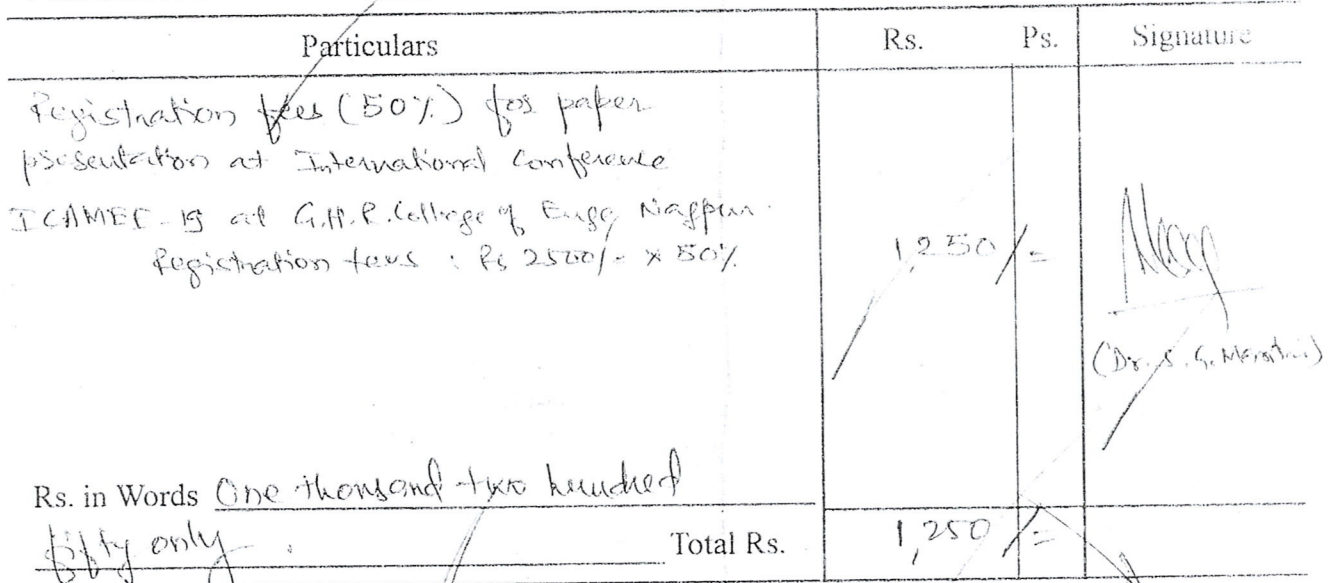 Particulars Rs. Ps. Signature
Registration fees (50%) for paper
presentation at International Conference
ICAMEE-19 at G.H.R. College of Engg Nagpur.
Registration fees : Rs 2500/- x 50% 1,250/=
(Dr. S. G.
Rs. in Words One thousand two hundred
fifty only. Total Rs. 1,250/=